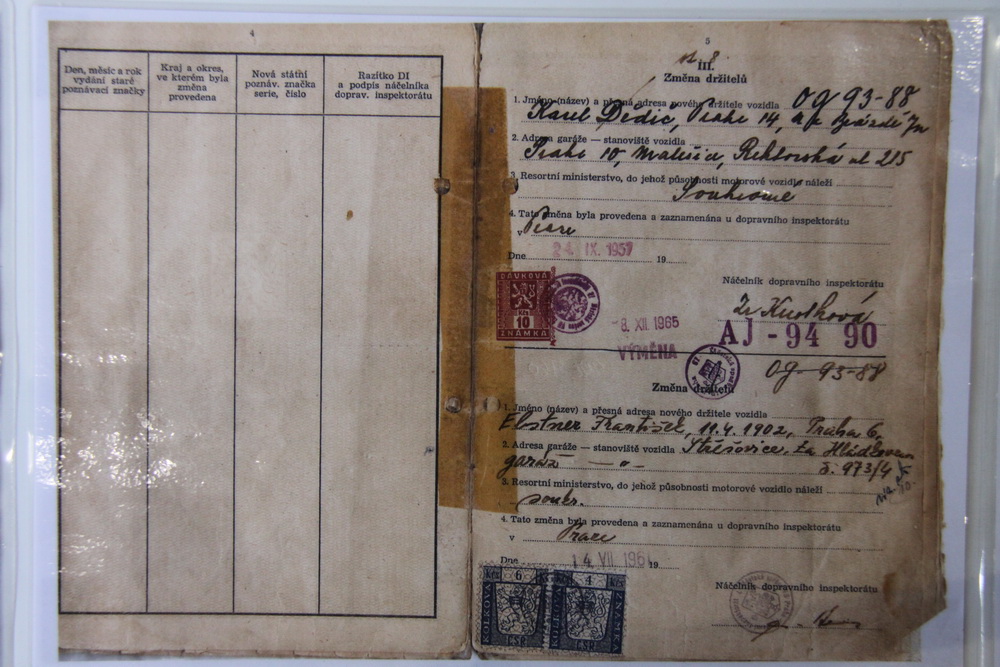 4
Den, měsíc a rok
vydání staré
poznávací značky
Kraj a okres,
ve kterém byla
změna
provedena
Nová státní
poznáv. značka
serie, číslo
Razítko DI
a podpis náčelníka
doprav. inspektorátu
5
III.
Změna držitelů
1. Jméno (název) a přesná adresa nového držitele vozidla 09 93-88
Karel Dedič, Praha 14,
2. Adresa garáže — stanoviště vozidla
Praha 10, Rektorská 215
3. Resortní ministerstvo, do jehož působnosti motorové vozidlo náleží
Soukromé
4. Tato změna byla provedena a zaznamenána u dopravního inspektorátu
v Praze
Dne 24. IX. 1957 19
Náčelník dopravního inspektorátu
DÁVKOVÁ
Kčs
10
ZNÁMKA
-8. XII. 1965
VÝMĚNA
AJ - 94 90
09-93-88
Změna držitelů
1. Jméno (název) a přesná adresa nového držitele vozidla
Elstner František, 11.4.1902, Praha 6,
2. Adresa garáže — stanoviště vozidla Střešovice, Za Hládkovem
garáž —"— č. 973/4
3. Resortní ministerstvo, do jehož působnosti motorové vozidlo náleží
soukr.
4. Tato změna byla provedena a zaznamenána u dopravního inspektorátu
v Praze
Dne 14. VII 1961 19
Náčelník dopravního inspektorátu
Kčs 6
KOLKOVÁ
ČSR
4 Kčs
KOLKOVÁ
ZNÁMKA
ČSR